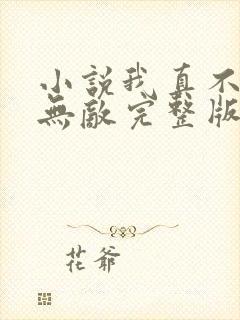 小說我真不
無敵完整版
花爺